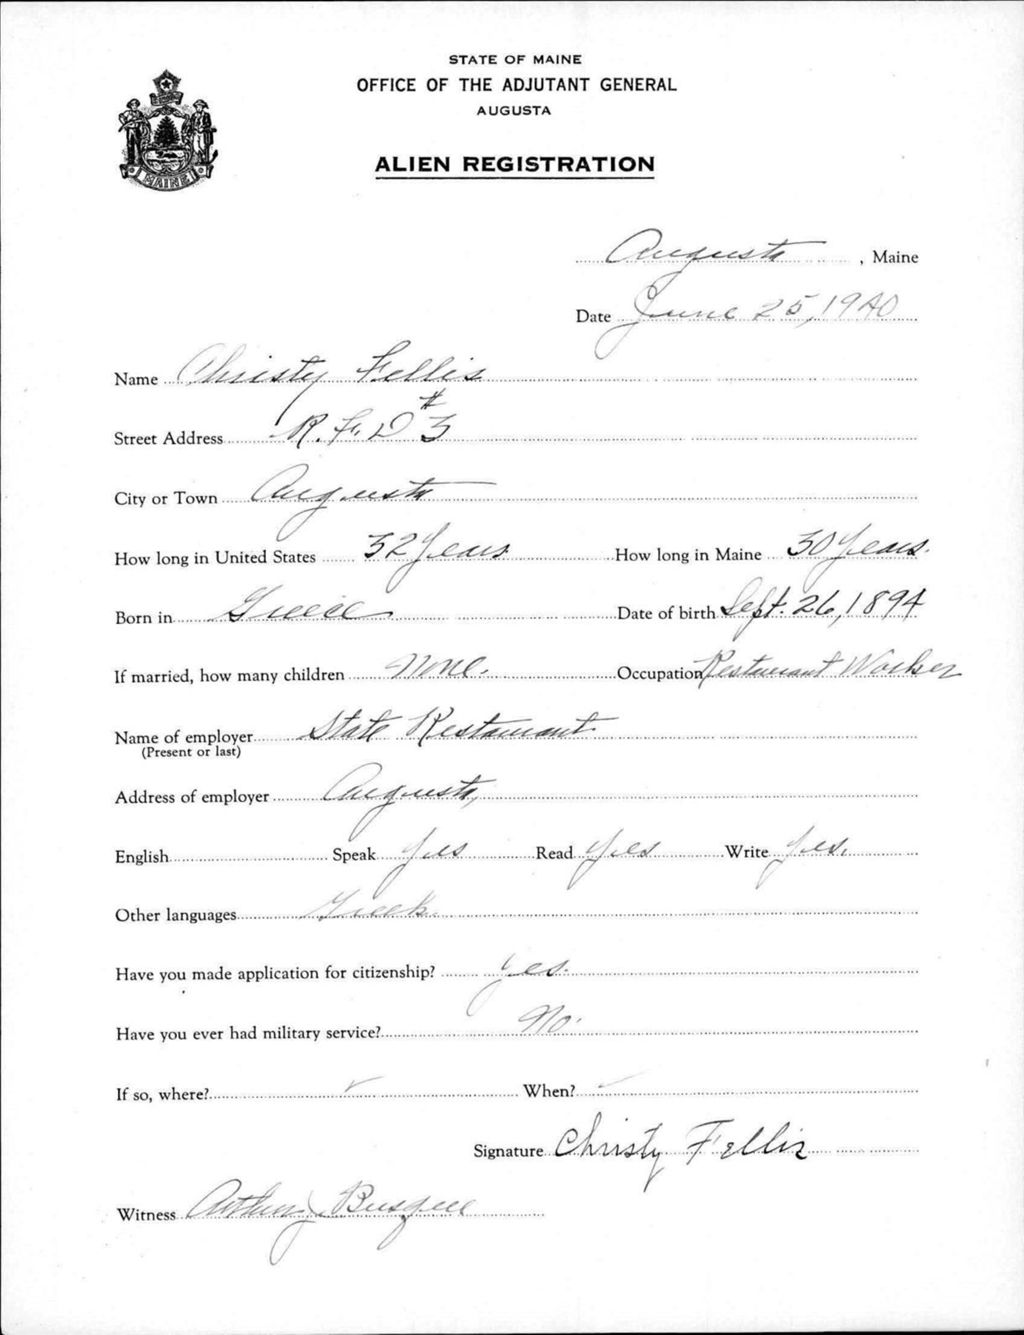 STATE OF MAINE
OFFICE OF THE ADJUTANT GENERAL
AUGUSTA
ALIEN REGISTRATION
MAINE
Augusta, Maine
Date June 25, 1940
Name Christy Fellis
Street Address R.F.D #3
City or Town Augusta
How long in United States 32 Years How long in Maine 30 Years.
Born in Greece Date of birth Sept. 26, 1894
If married, how many children None. Occupation Restaurant Worker
Name of employer State Restaurant
(Present or last)
Address of employer Augusta,
English Speak Yes Read Yes Write Yes.
Other languages Greek.
Have you made application for citizenship? Yes.
Have you ever had military service? No.
If so, where? When?
Signature Christy Fellis
Witness